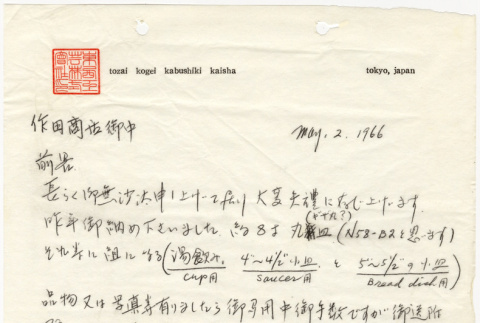 東西工芸株式會社
tozai kogei kabushiki kaisha
tokyo, japan
作田商店御中
May, 2. 1966
前畧
長らく御無沙汰申上げて居り大変失禮に存じ上げます
昨年御納め下さいました 約8寸 丸皿 (N58-B2と思います)
それ等に組になる (湯飲み, 4"~4½"小皿 と 5"~5½"の小皿)
cup用 saucer用 Bread dish用
品物又は写真等有りましたら御多用中御手数ですが御送附